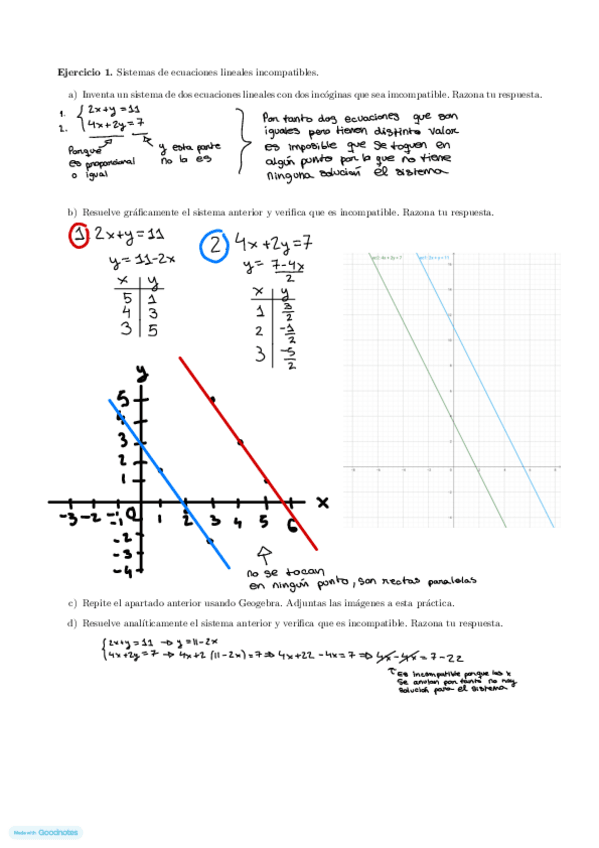 Ejercicio 1. Sistemas de ecuaciones lineales incompatibles.
a) Inventa un sistema de dos ecuaciones lineales con dos incóginas que sea imcompatible. Razona tu respuesta.
1. 2x+y=11
2. 4x+2y=7
Porqué
es proporcional
o igual
y esta parte
no la es
Por tanto dos ecuaciones que son
iguales pero tienen distinto valor
es imposible que se toquen en
algún punto por lo que no tiene
ninguna solución el sistema
b) Resuelve gráficamente el sistema anterior y verifica que es incompatible. Razona tu respuesta.
1) 2x+y=11
y=11-2x
x y
5 1
4 3
3 5
2) 4x+2y=7
y= 7-4x
2
x y
1 3/2
2 -1/2
3 -5/2
y
5
4
3
2
1
-3 -2 -1 0 1 2 3 4 5 6 x
-2
-3
-4
no se tocan
en ningún punto, son rectas paralelas
c) Repite el apartado anterior usando Geogebra. Adjuntas las imágenes a esta práctica.
d) Resuelve analíticamente el sistema anterior y verifica que es incompatible. Razona tu respuesta.
2x+y=11 → y=11-2x
4x+2y=7 → 4x+2(11-2x)=7 ⇒ 4x+22-4x=7 ⇒ 4x-4x=7-22
Es incompatible porque las x
se anulan por tanto no hay
solución para el sistema
Made with Goodnotes